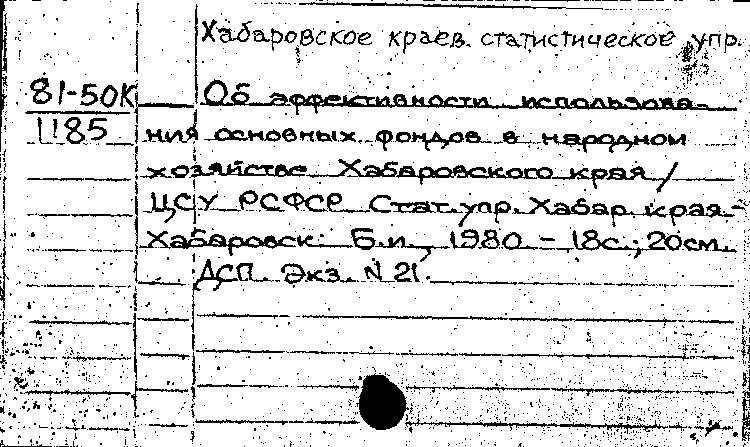 Хабаровское краев. статистическое упр.
81-50К
1185
Об эффективности использова-
ния основных фондов в народном
хозяйстве Хабаровского края /
ЦСУ РСФСР. Стат. упр. Хабар. края.-
Хабаровск: Б.и., 1980. - 18с.; 20см.
ДСП. Экз. N 21.